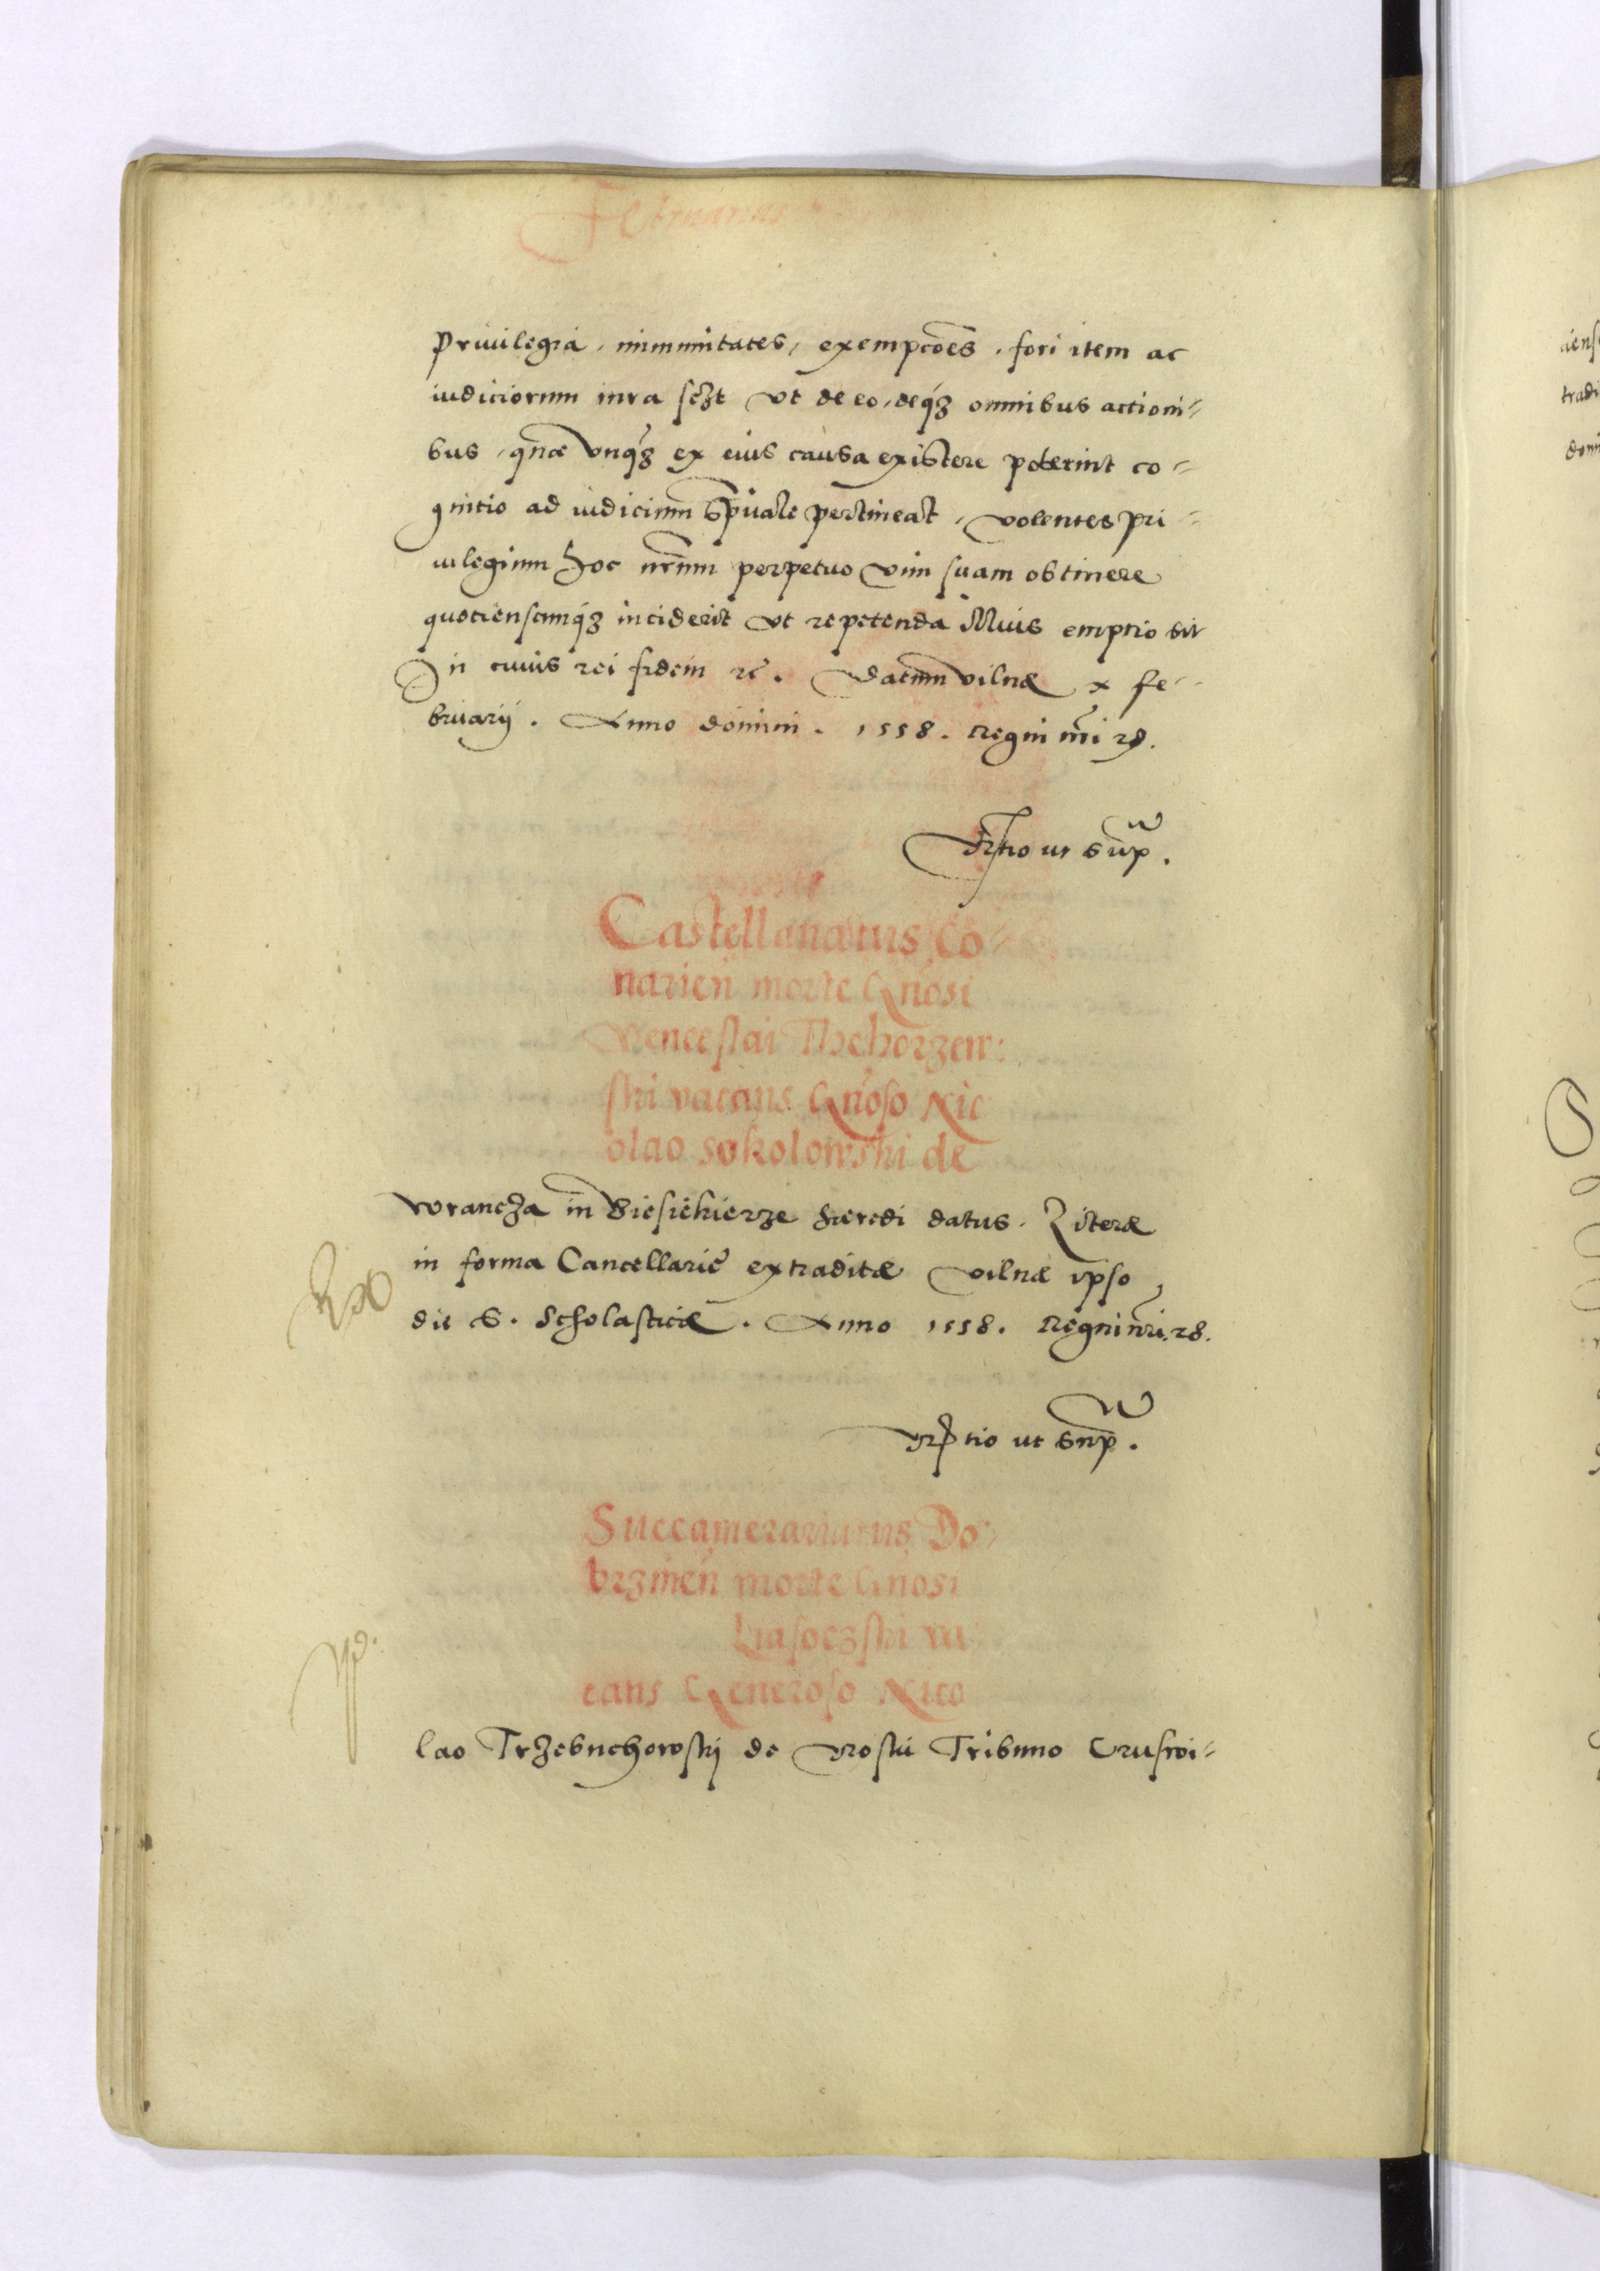 Februarius
priuilegia, immunitates, exempcoes, fori item ac
iudiciorum iura sczt vt de eo, deq3 omnibus actioni=
bus, quae vnq3 ex eius causa existere poterint co=
gnitio ad iudicium spuale pertineat, volentes pri=
uilegium hoc nrum perpetuo vim suam obtinere
quotienscunq3 inciderit vt repetenda illius emptio sit
In cuius rei fidem rc. Datum vilnae x fe=
bruarij. Anno domini. 1558. Regni nri 28.
ut sup.
Castellanatus Co=
narien morte Gnosi
Venceslai Thchorzew:
ski vacans Gnoso Nic
olao Sokolowski de
wrancza in Biesiekierze haeredi datus. Literae
in forma Cancellarie extraditae vilnae ipso
die S. Scholasticae. Anno 1558. Regni nri. 28.
ut sup.
Succamerariatus Do=
brzinen morte Gnosi
Liasoczski va
cans Generoso Nico
lao Trzebuchowskj de Tribuno Crusvi=